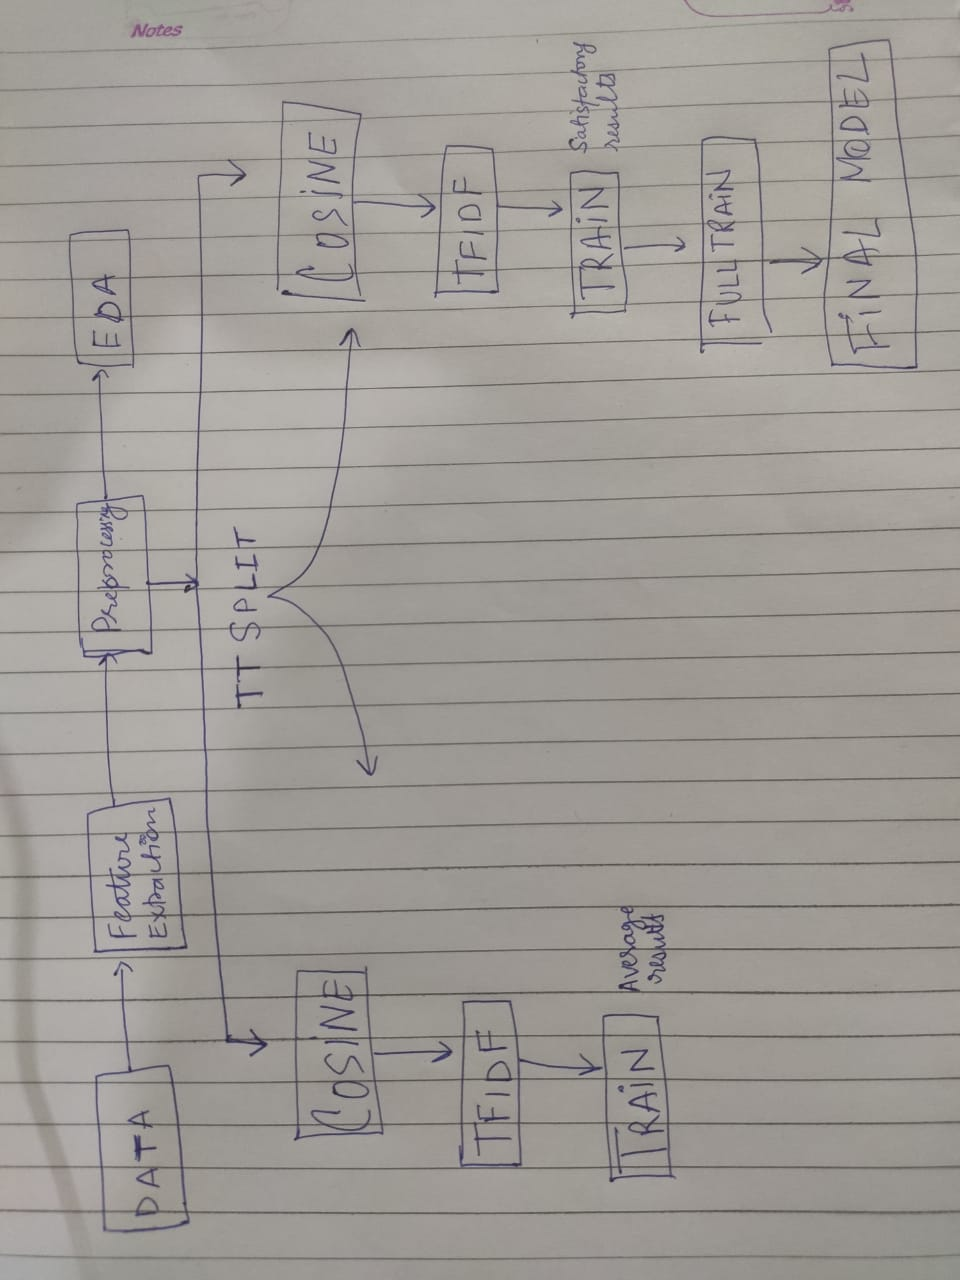 Notes
DATA
Feature
Extraction
Preprocessing
EDA
TT SPLIT
COSINE
TFIDF
TRAIN
Average
results
COSINE
TFIDF
TRAIN
Satisfactory
results
FULL TRAIN
FINAL MODEL